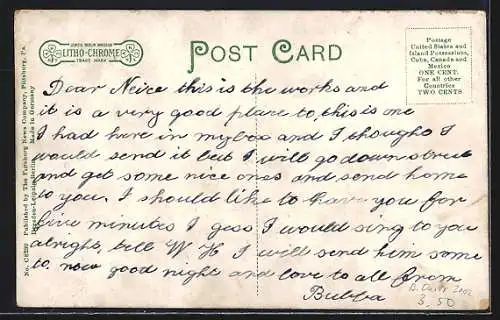 LITHO-CHROME
TRADE MARK
POST CARD
Postage
United States and
Island Possessions,
Cuba, Canada and
Mexico
ONE CENT.
For all other
Countries
TWO CENTS
Published by The Pittsburg News Company, Pittsburg, Pa.
Dresden-Leipzig-Berlin Made in Germany
Dear Neice this is the works and
it is a very good place to, this is one
I had here in my box and I thought I
would send it but I will go down street
and get some nice ones and send home
to you. I should like to have you for
five minutes I gess I would sing to you
alright, tell W H I will send him some
to. now good night and love to all from
Bubba
3.50